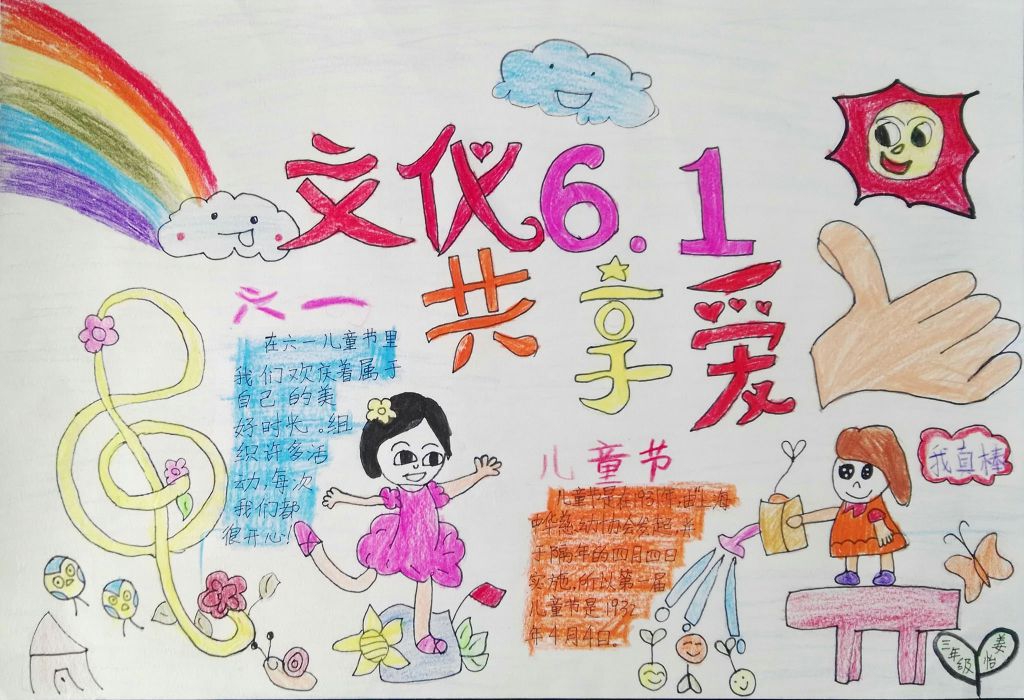 文仪6.1
共享爱
六一
在六一儿童节里
我们欢庆着属于
自己的美
好时光。组
织许多活
动,每次
我们都
很开心!
儿童节
儿童节是在1931年由上海
中华慈幼协会发起,并
于隔年的四月四日
实施,所以第一届
儿童节是1932
年4月4日。
我真棒
三年级
姜怡